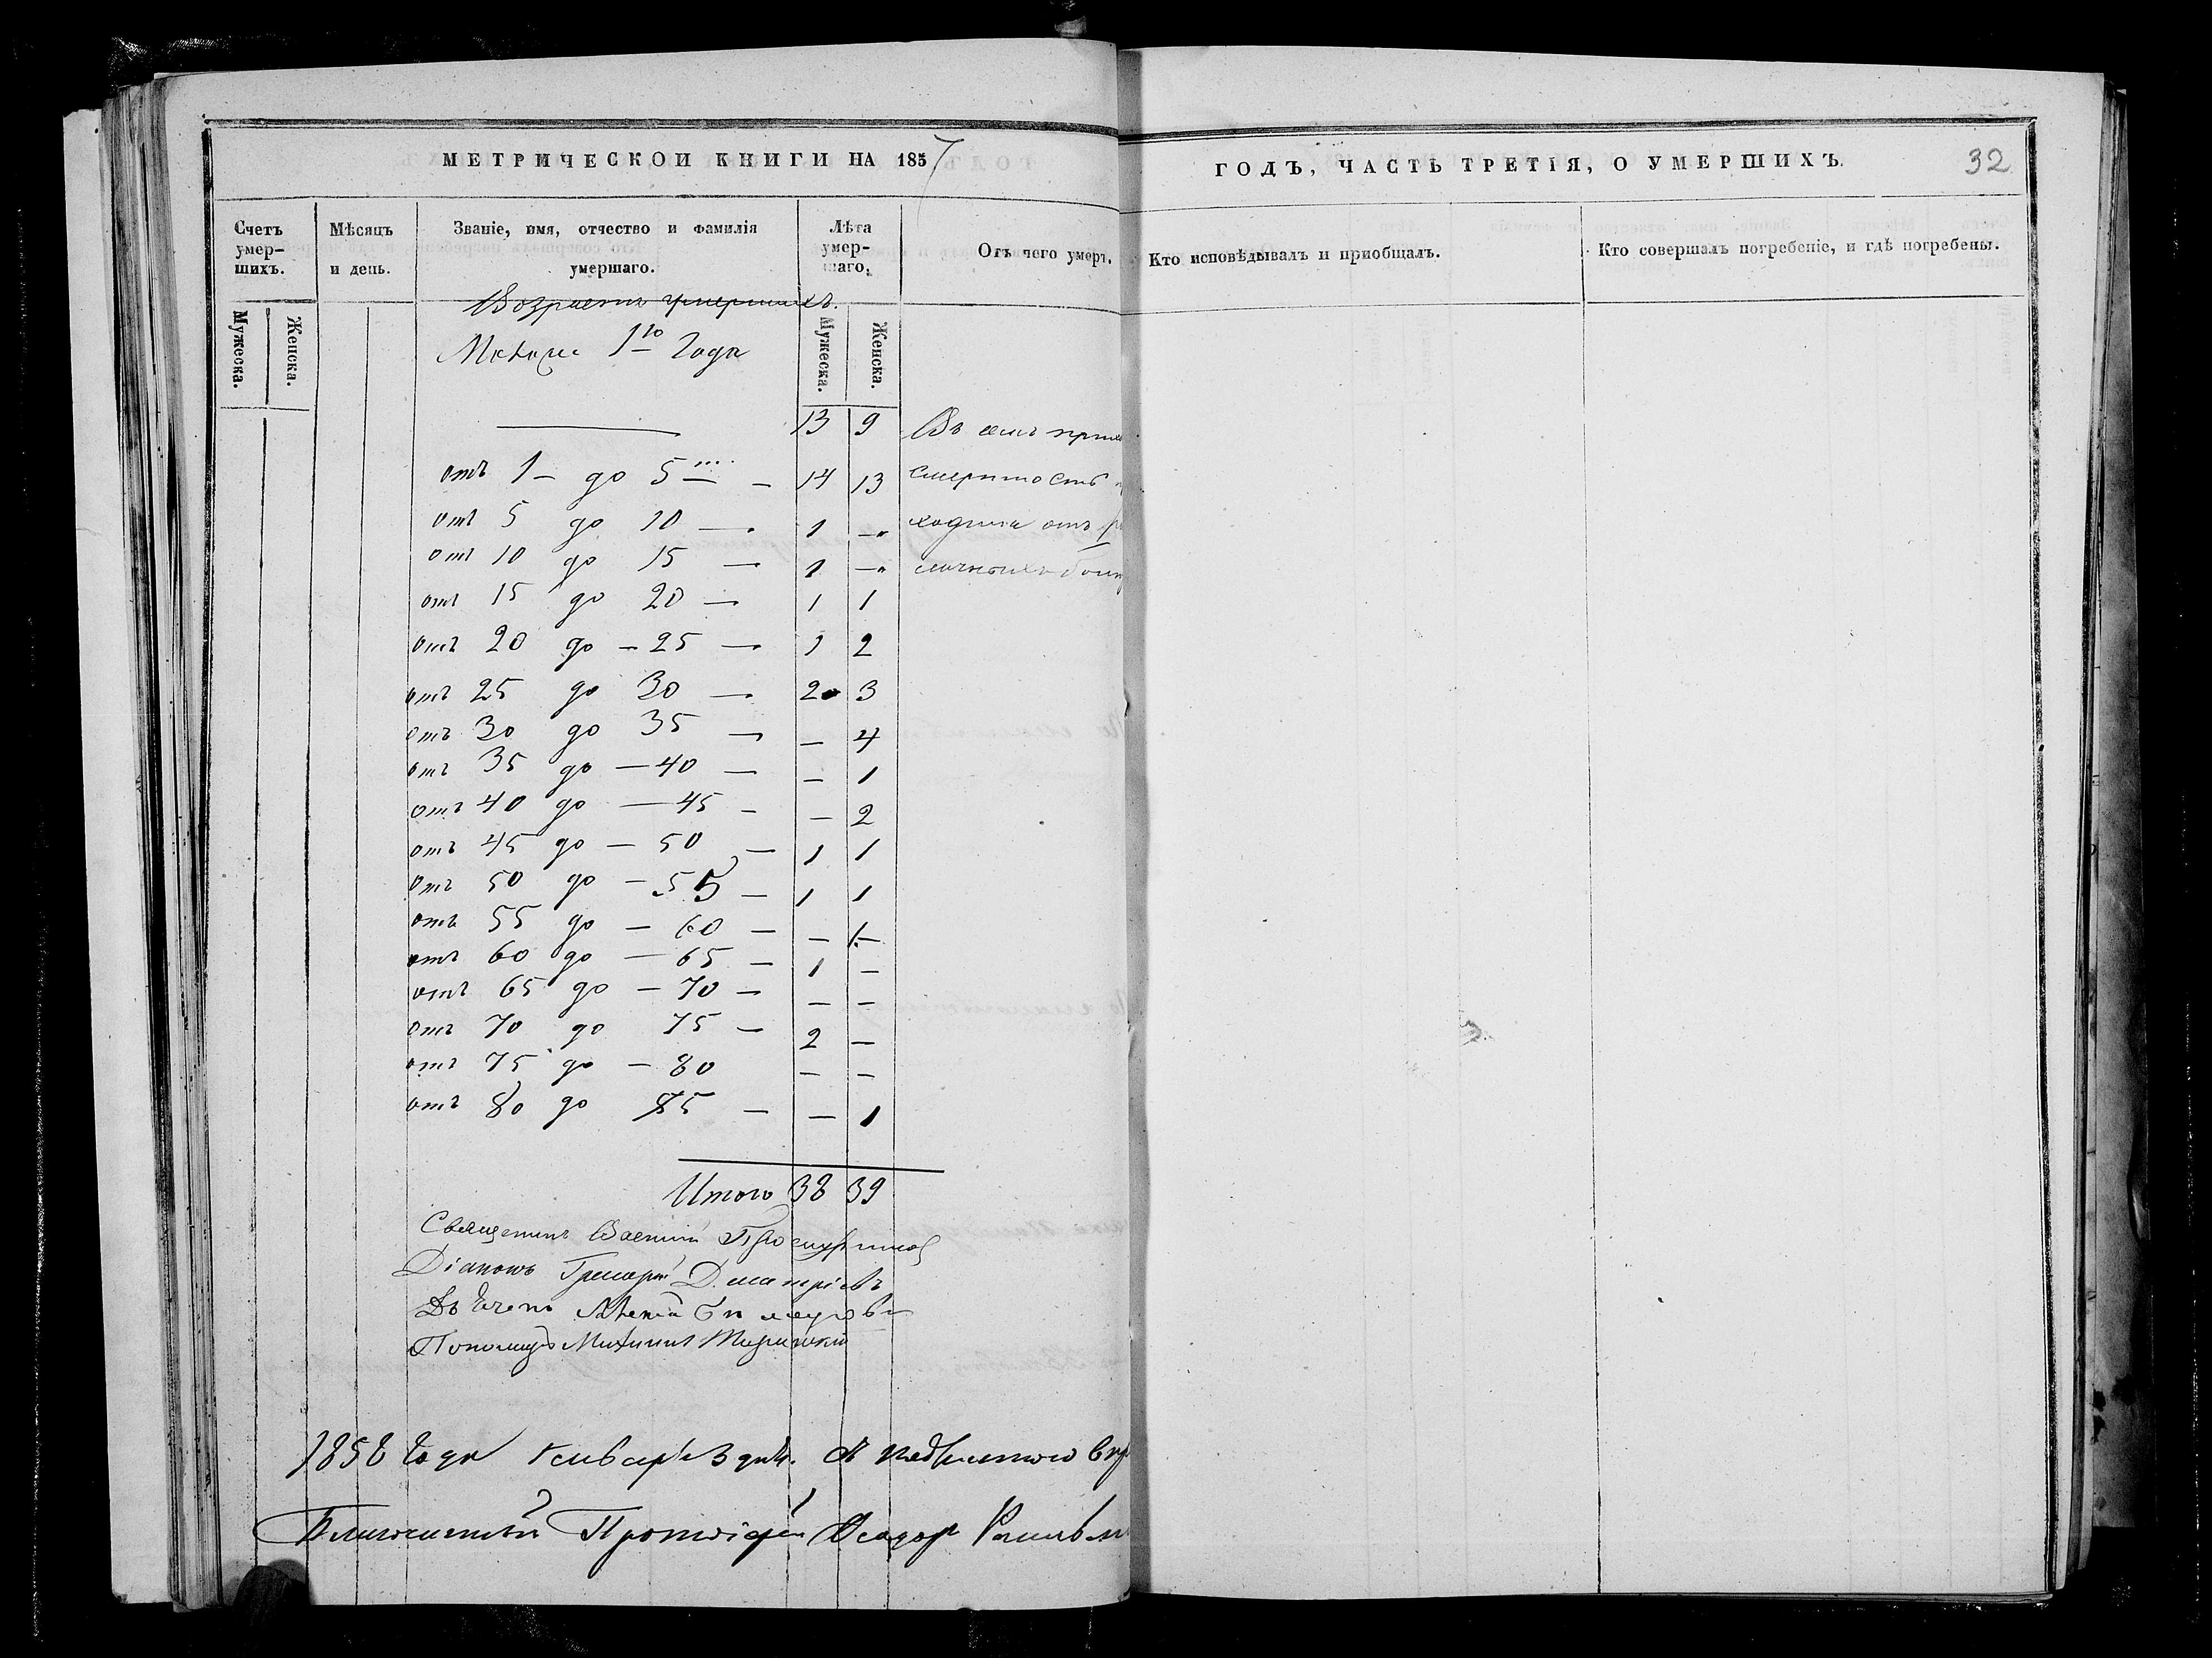 МЕТРИЧЕСКОЙ КНИГИ НА 1857
ГОДЪ, ЧАСТЬ ТРЕТІЯ, О УМЕРШИХЪ.
32
Счетъ умер-шихъ.
Мѣсяцъ и день.
Званіе, имя, отчество и фамилія умершаго.
Лѣта умер-шаго.
Отъ чего умеръ.
Кто исповѣдывалъ и пріобщалъ.
Кто совершалъ погребеніе, и гдѣ погребены.
Мужеска.
Женска.
Мужеска.
Женска.
Возрастъ умершихъ.
1го Года
13 9 Въ семъ
отъ 1 – до 5 – 14 13 смертность
отъ 5 до 10 — 1 —„ ходила отъ
отъ 10 до 15 — 1 —„
отъ 15 до 20 — 1 1
отъ 20 до – 25 — 1 2
отъ 25 до 30 — 2 3
отъ 30 до 35 — — 4
отъ 35 до — 40 — — 1
отъ 40 до — 45 – — 2
отъ 45 до — 50 — 1 1
отъ 50 до – 55 — 1 1
отъ 55 до – 60 — — 1
отъ 60 до — 65 — 1 —
отъ 65 до – 70 — — —
отъ 70 до 75 — 2 —
отъ 75 до – 80 — —
отъ 80 до 85 — — 1
Итого 38 39
Священникъ Василій
Діаконъ Григорій Димитріевъ
Дьячекъ Алексѣй
Пономарь Михаилъ
1858 Года Января 3 дня.
Благочинный Протоіерей Ѳеодоръ